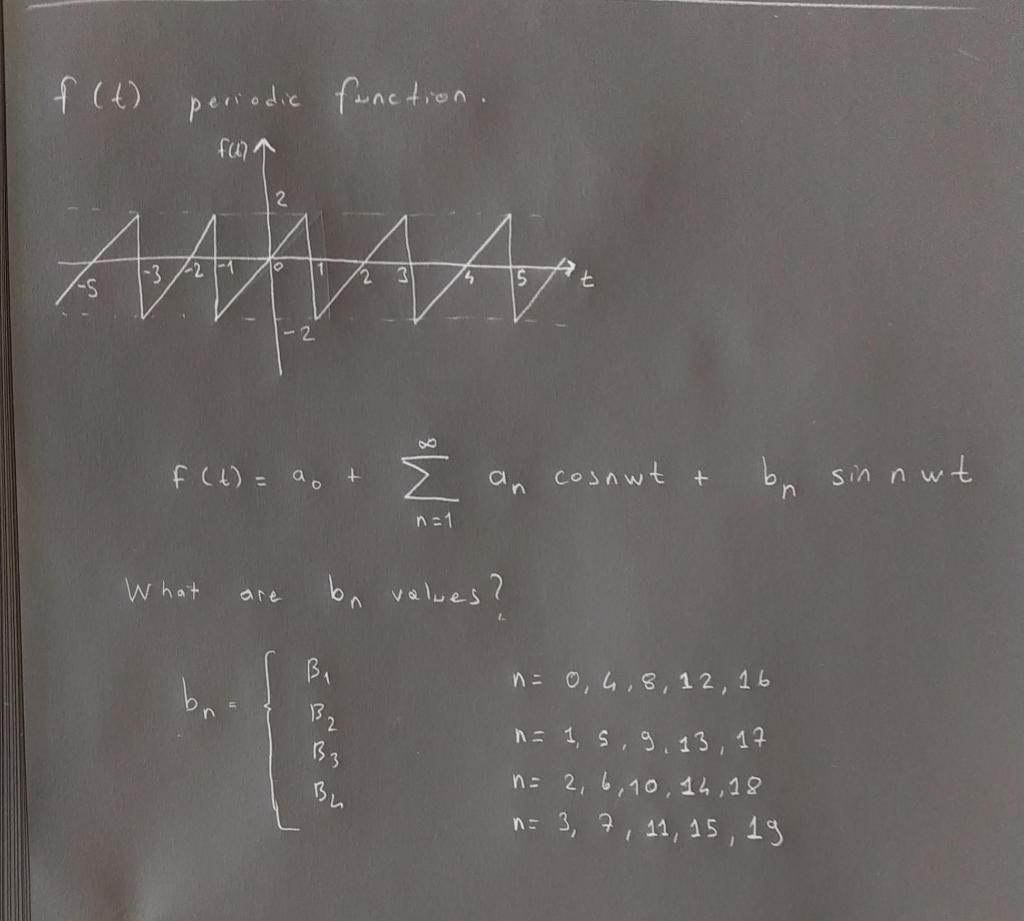 f(t) periodic function.
f(t)
2
-5 -3 -2 -1 0 1 2 3 4 5 t
-2
f(t) = a₀ + ∞∑n=1 aₙ cosnwt + bₙ sin nwt
What are bₙ values?
bₙ = { B₁ n= 0, 4, 8, 12, 16
B₂ n= 1, 5, 9, 13, 17
B₃ n= 2, 6, 10, 14, 18
B₄ n= 3, 7, 11, 15, 19